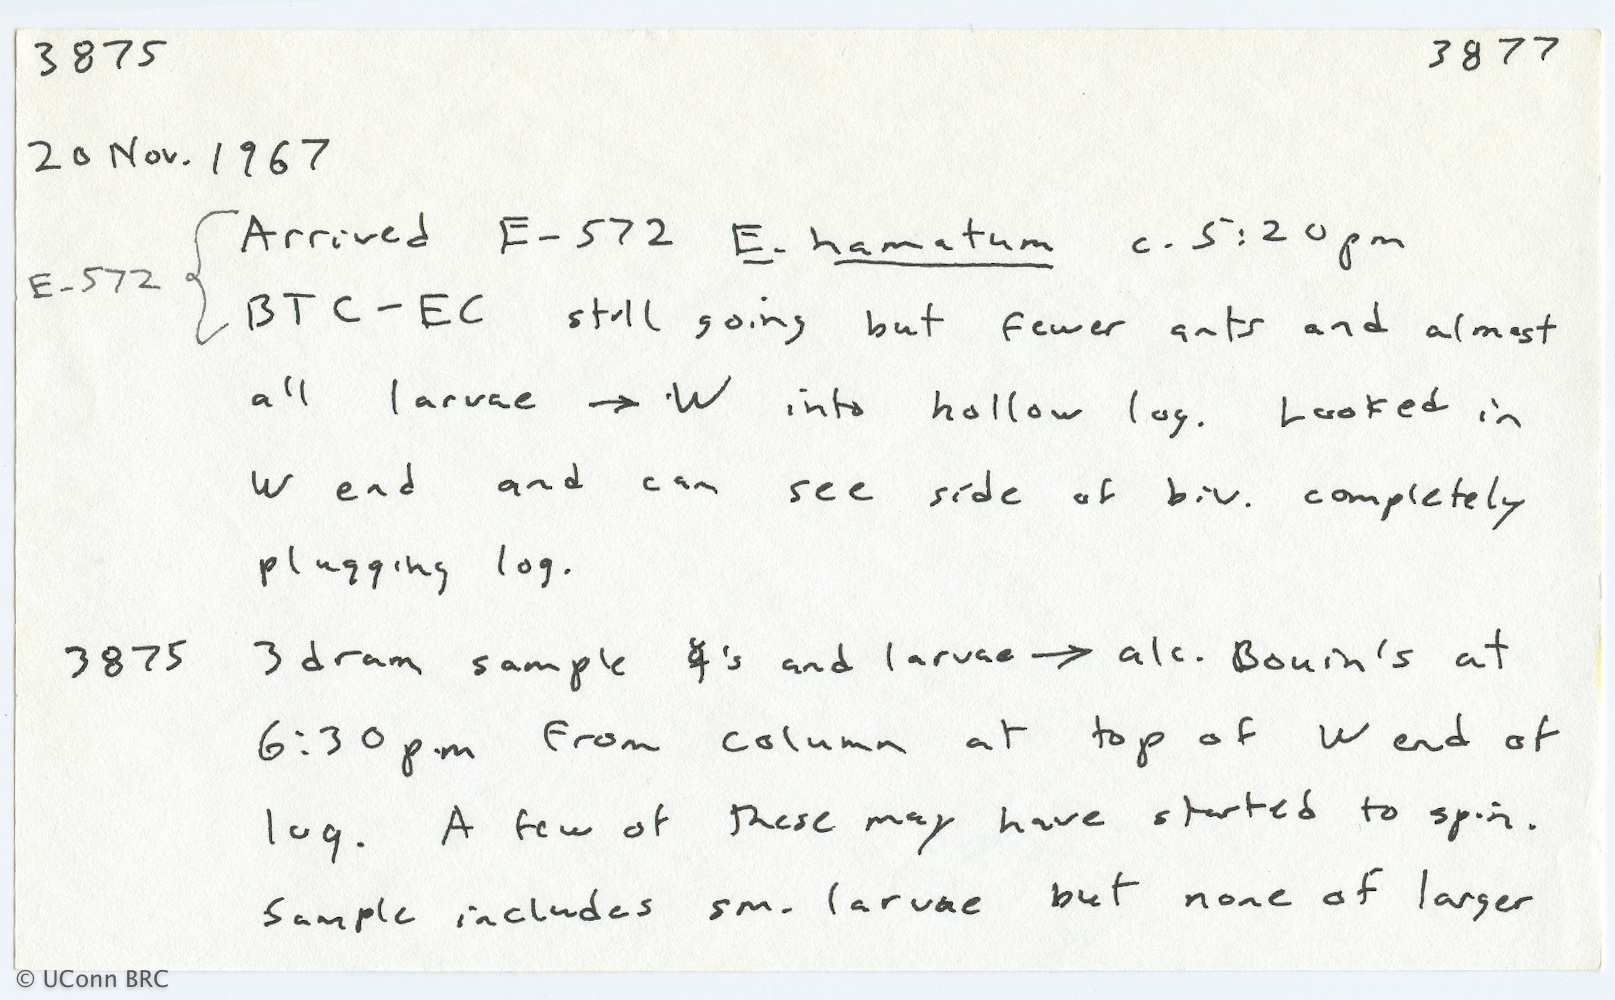 3875 3877
20 Nov. 1967
E-572 { Arrived E-572 E. hamatum c. 5:20pm
BTC-EC still going but fewer ants and almost
all larvae → W into hollow log. Looked in
W end and can see side of biv. completely
plugging log.
3875 3 dram sample ☿'s and larvae → alc. Bouin's at
6:30 pm from column at top of W end of
log. A few of these may have started to spin.
Sample includes sm. larvae but none of larger
© UConn BRC